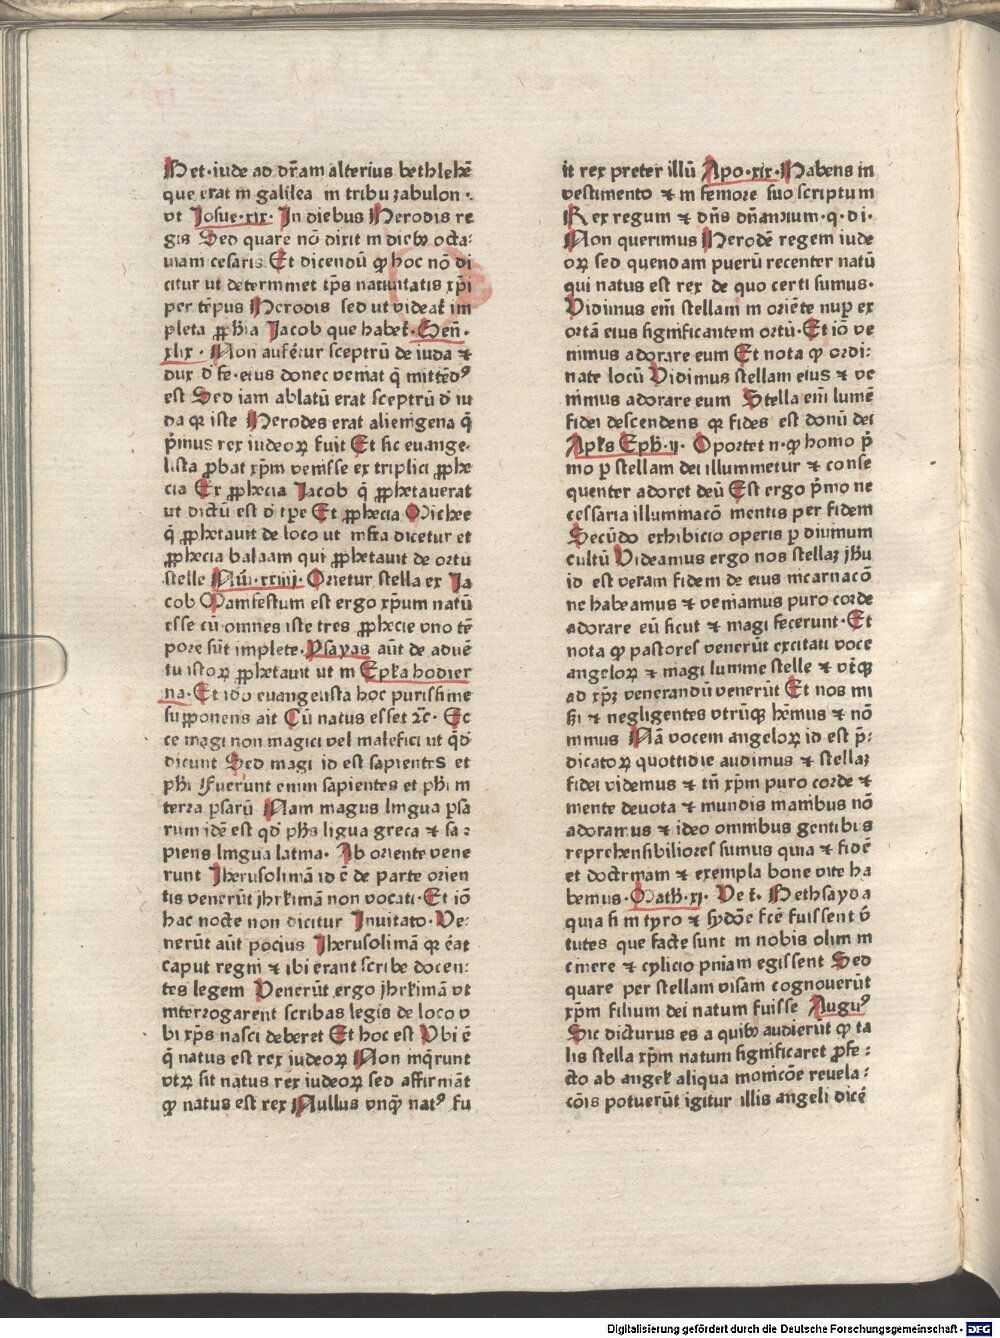 Het·iude ad dr̄am alterius bethlehē
que erat in galilea in tribu zabulon ·
vt Josue·xix· In diebus Herodis re
gis Sed quare nō dixit in diebꝰ octa-
uiani cesaris Et dicendū ꝙ hoc nō di
citur ut determinet tp̄s natiuitatis xp̄i
per tēpus Herodis sed ut videat̄ im
pleta ꝓph̄ia Jacob que habet̄· Gen̄·
xlix· Non auferetur sceptrū de iuda ⁊
dux d̄ fe·eius donec veniat q̄ mittēdꝰ
est Sed iam ablatū erat sceptrū d̄ iu
da qr iste Herodes erat alienigena q̄
p̄mus rex iudeoꝝ fuit Et sic euange-
lista ꝓbat xp̄m venisse ex triplici ꝓphe
cia Ex ꝓphecia Jacob q̄ ꝓphetauerat
ut dictū est d̄ tp̄e Et ꝓphecia Michee
q̄ ꝓphetauit de loco ut infra dicetur et
ꝓphecia balaam qui ꝓphetauit de ortu
stelle Nūi·xxiiij· Orietur stella ex Ja
cob Manifestum est ergo xp̄um natū
esse cū omnes iste tres ꝓphecie vno tē
pore sūt implete· Ysayas aūt de aduē
tu istoꝝ ꝓphetauit ut in Ep̄ła hodier
na· Et ido euangelista hoc purissime
supponens ait Cū natus esset ⁊c̄· Ec
ce magi non magici vel malefici ut q̄d̄
dicunt Sed magi id est sapientes et
ph̄i Fuerunt enim sapientes et ph̄i in
terra ꝑsarū Nam magus lingua ꝑsa
rum idē est qd̄ ph̄s ligua greca ⁊ sa:
piens lingua latina· Ab oriente vene
runt Jherusolimā id ē de parte orien
tis venerūt jhrl̄imā non vocati· Et iō
hac nocte non dicitur Inuitato· Ve:
nerūt aūt pocius Jherusolimā qr ēat
caput regni ⁊ ibi erant scribe docen:
tes legem Venerūt ergo jhrl̄imā vt
interrogarent scribas legis de loco v
bi xp̄s nasci deberet Et hoc est Vbi ē
q̄ natus est rex iudeoꝝ Non inq̄runt
vtꝝ sit natus rex iudeoꝝ sed affirmāt
ꝙ natus est rex Nullus vnq̄ natꝰ fu
it rex preter illū Apo·xix· Habens in
vestimento ⁊ in femore suo scriptum
Rex regum ⁊ dn̄s dn̄anxium·q·di·
Non querimus Herodē regem iude
oꝝ sed quendam puerū recenter natū
qui natus est rex de quo certi sumus·
Vidimus em̄ stellam in oriēte nuꝑ ex
ortā eius significantem ortū· Et iō ve
nimus adorare eum Et nota ꝙ ordi:
nate locū Vidimus stellam eius ⁊ ve
nimus adorare eum Stella em̄ lumē
fidei descendens qr fides est donū dei
Ap̄ls Eph̄·ij· Oportet n·ꝙ homo p̄
mo ꝑ stellam dei illuminetur ⁊ conse
quenter adoret deū Est ergo p̄mo ne
cessaria illuminacō mentis per fidem
Secūdo exhibicio operis ꝑ diuinum
cultū Videamus ergo nos stellaȝ jh̄u
id est veram fidem de eius incarnacō
ne habeamus ⁊ veniamus puro corde
adorare eū sicut ⁊ magi fecerunt· Et
nota ꝙ pastores venerūt excitati voce
angeloꝝ ⁊ magi lumine stelle ⁊ vtīqȝ
ad xp̄ȝ venerandū venerūt Et nos mi
s̄i ⁊ negligentes vtrūqȝ hēmus ⁊ nō
inimus Nā vocem angeloꝝ id est p̄:
dicatoꝝ quottidie audimus ⁊ stellaȝ
fidei videmus ⁊ tn̄ xp̄m puro corde ⁊
mente deuota ⁊ mundis manibus nō
adoramus ⁊ ideo omnibus gentibus
reprehensibiliores sumus quia ⁊ fidē
et doctrinam ⁊ exempla bone vite ha
bemus· Math̄·xj· Ve t̄· Bethsayda
quia si in tyro ⁊ sydōe fcē fuissent v̄
tutes que facte sunt in nobis olim in
cinere ⁊ cylicio pniam egissent Sed
quare per stellam visam cognouerūt
xp̄m filium dei natum fuisse Auguꝰ
Sic dicturus es a quibꝰ audierūt ꝙ ta
lis stella xp̄m natum significaret ꝓfe:
cto ab angel̄ aliqua monicōe reuela:
cōis potuerūt igitur illis angeli dicē
Digitalisierung gefördert durch die Deutsche Forschungsgemeinschaft - DFG